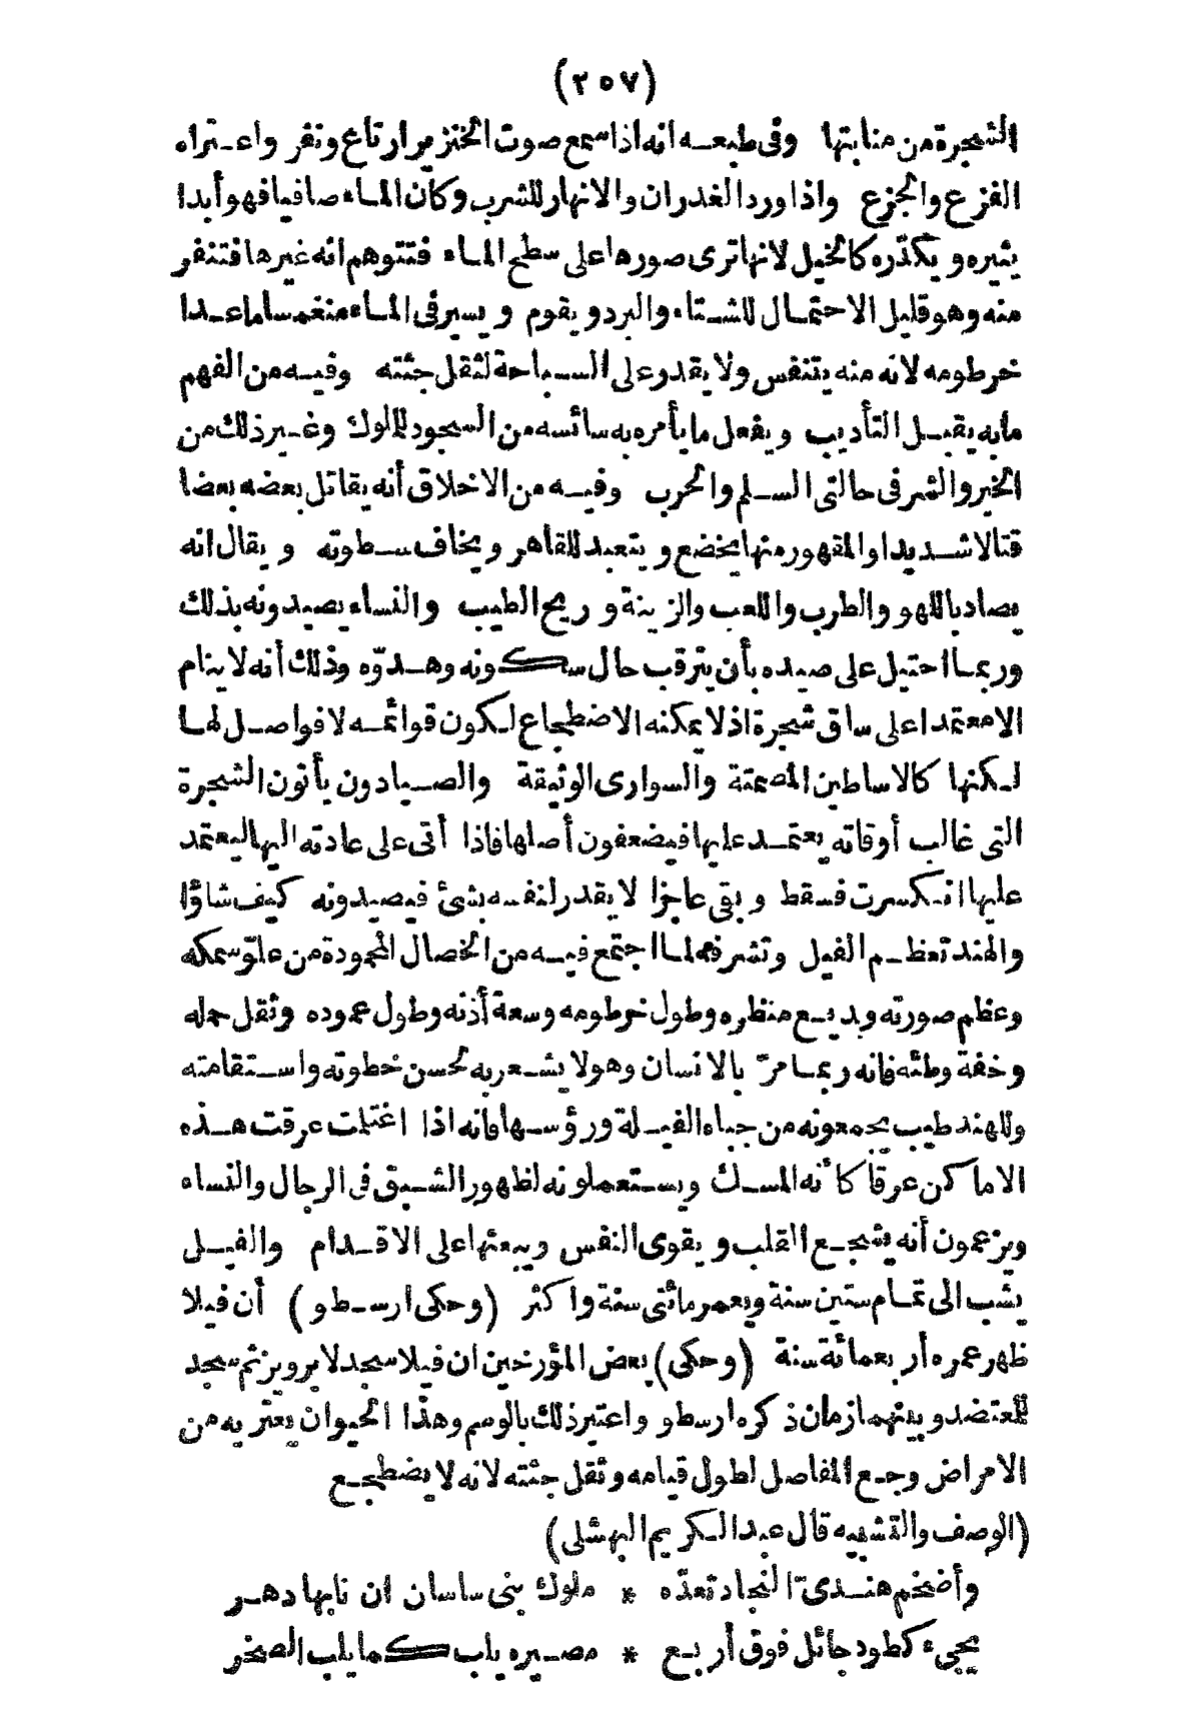 (٢٥٧)
الشجرة من منابتها وفى طبعه انه اذا سمع صوت الخنزير ارتاع ونفر واعتراه
الفزع والجزع واذا ورد الغدران والانهار للشرب وكان الماء صافيا فهو أبدا
يثيره ويكدّره كالخيل لانها ترى صورها على سطح الماء فتتوهم انه غيرها فتنفر
منه وهو قليل الاحتمال للشتاء والبرد ويقوم ويسير فى الماء منغمسا ما عدا
خرطومه لانه منه يتنفس ولا يقدر على السباحة لثقل جثته وفيه من الفهم
ما به يقبل التأديب ويفعل ما يأمره به سائسه من السجود للملوك وغير ذلك من
الخير والشر فى حالتى السلم والحرب وفيه من الاخلاق أنه يقاتل بعضه بعضا
قتالا شديدا والمقهور منها يخضع ويتعبد للقاهر ويخاف سطوته ويقال انه
يصاد باللهو والطرب واللعب والزينة وريح الطيب والنساء يصيدونه بذلك
وربما احتيل على صيده بأن يترقب حال سكونه وهدوّه وذلك أنه لا ينام
الا معتمدا على ساق شجرة اذ لا يمكنه الاضطجاع لكون قوائمه لا فواصل لها
لكنها كالاساطين المصمتة والسوارى الوثيقة والصيادون يأتون الشجرة
التى غالب أوقاته يعتمد عليها فيضعفون أصلها فاذا أتى على عادته اليها ليعتمد
عليها انكسرت فسقط وبقى عاجزا لا يقدر لنفسه بشئ فيصيدونه كيف شاؤا
والهند تعظم الفيل وتشرفه لما اجتمع فيه من الخصال المحمودة من علوّ سمكه
وعظم صورته وبديع منظره وطول خرطومه وسعة أذنه وطول عموده وثقل حمله
وخفة وطئه فانه ربما مرّ بالانسان وهو لا يشعر به لحسن خطوته واستقامته
وللهند طيب يجمعونه من جباه الفيلة ورؤسها فانه اذا اغتلمت عرقت هذه
الاماكن عرقا كأنه المسك ويستعملونه لظهور الشبق فى الرجال والنساء
ويزعمون أنه يشجع القلب ويقوى النفس ويبعثها على الاقدام والفيل
يشب الى تمام ستين سنة ويعمر مائتى سنة واكثر (وحكى ارسطو) أن فيلا
ظهر عمره أربعمائة سنة (وحكى) بعض المؤرخين ان فيلا سجد لابرويز ثم سجد
للمعتضد وبينهما زمان ذكره ارسطو واعتبر ذلك بالوسم وهذا الحيوان يعتريه من
الامراض وجع المفاصل لطول قيامه وثقل جثته لانه لا يضطجع
(الوصف والتشبيه قال عبد الكريم النهشلى)
وأضخم هندىّ النجاد تعدّه * ملوك بنى ساسان ان نابها دهر
يجىء كطود جائل فوق أربع * مضبرة لمت كما لمت الصخر